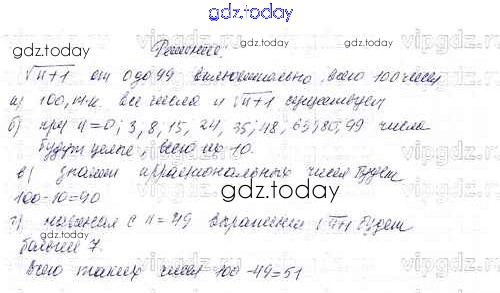 gdz.today
gdz.today Решение. gdz.today
√n+1 от 0 до 99 включительно, всего 100 чисел
а) 100, т.к. все числа и √n+1 существуют
б) при n=0; 3, 8, 15, 24, 35, 48, 63, 80, 99 числа
будут целые, всего их 10.
в) значит иррациональных чисел будет
100-10=90
gdz.today gdz.today
г) начиная с n=49 выражения √n+1 будет
больше 7.
Всего таких чисел 100-49=51
gdz.today